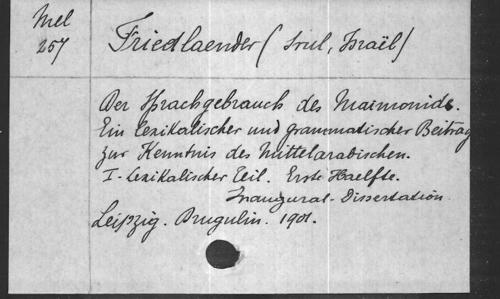 Mel
257
Friedlaender (Srul, Israël)
Der Sprachgebrauch des Maimonides.
Ein lexikalischer und grammatischer Beitrag
zur Kenntnis des Mittelarabischen.
I- Lexikalischer Teil. Erste Haelfte.
Inaugural-Dissertation
Leipzig. Drugulin. 1901.